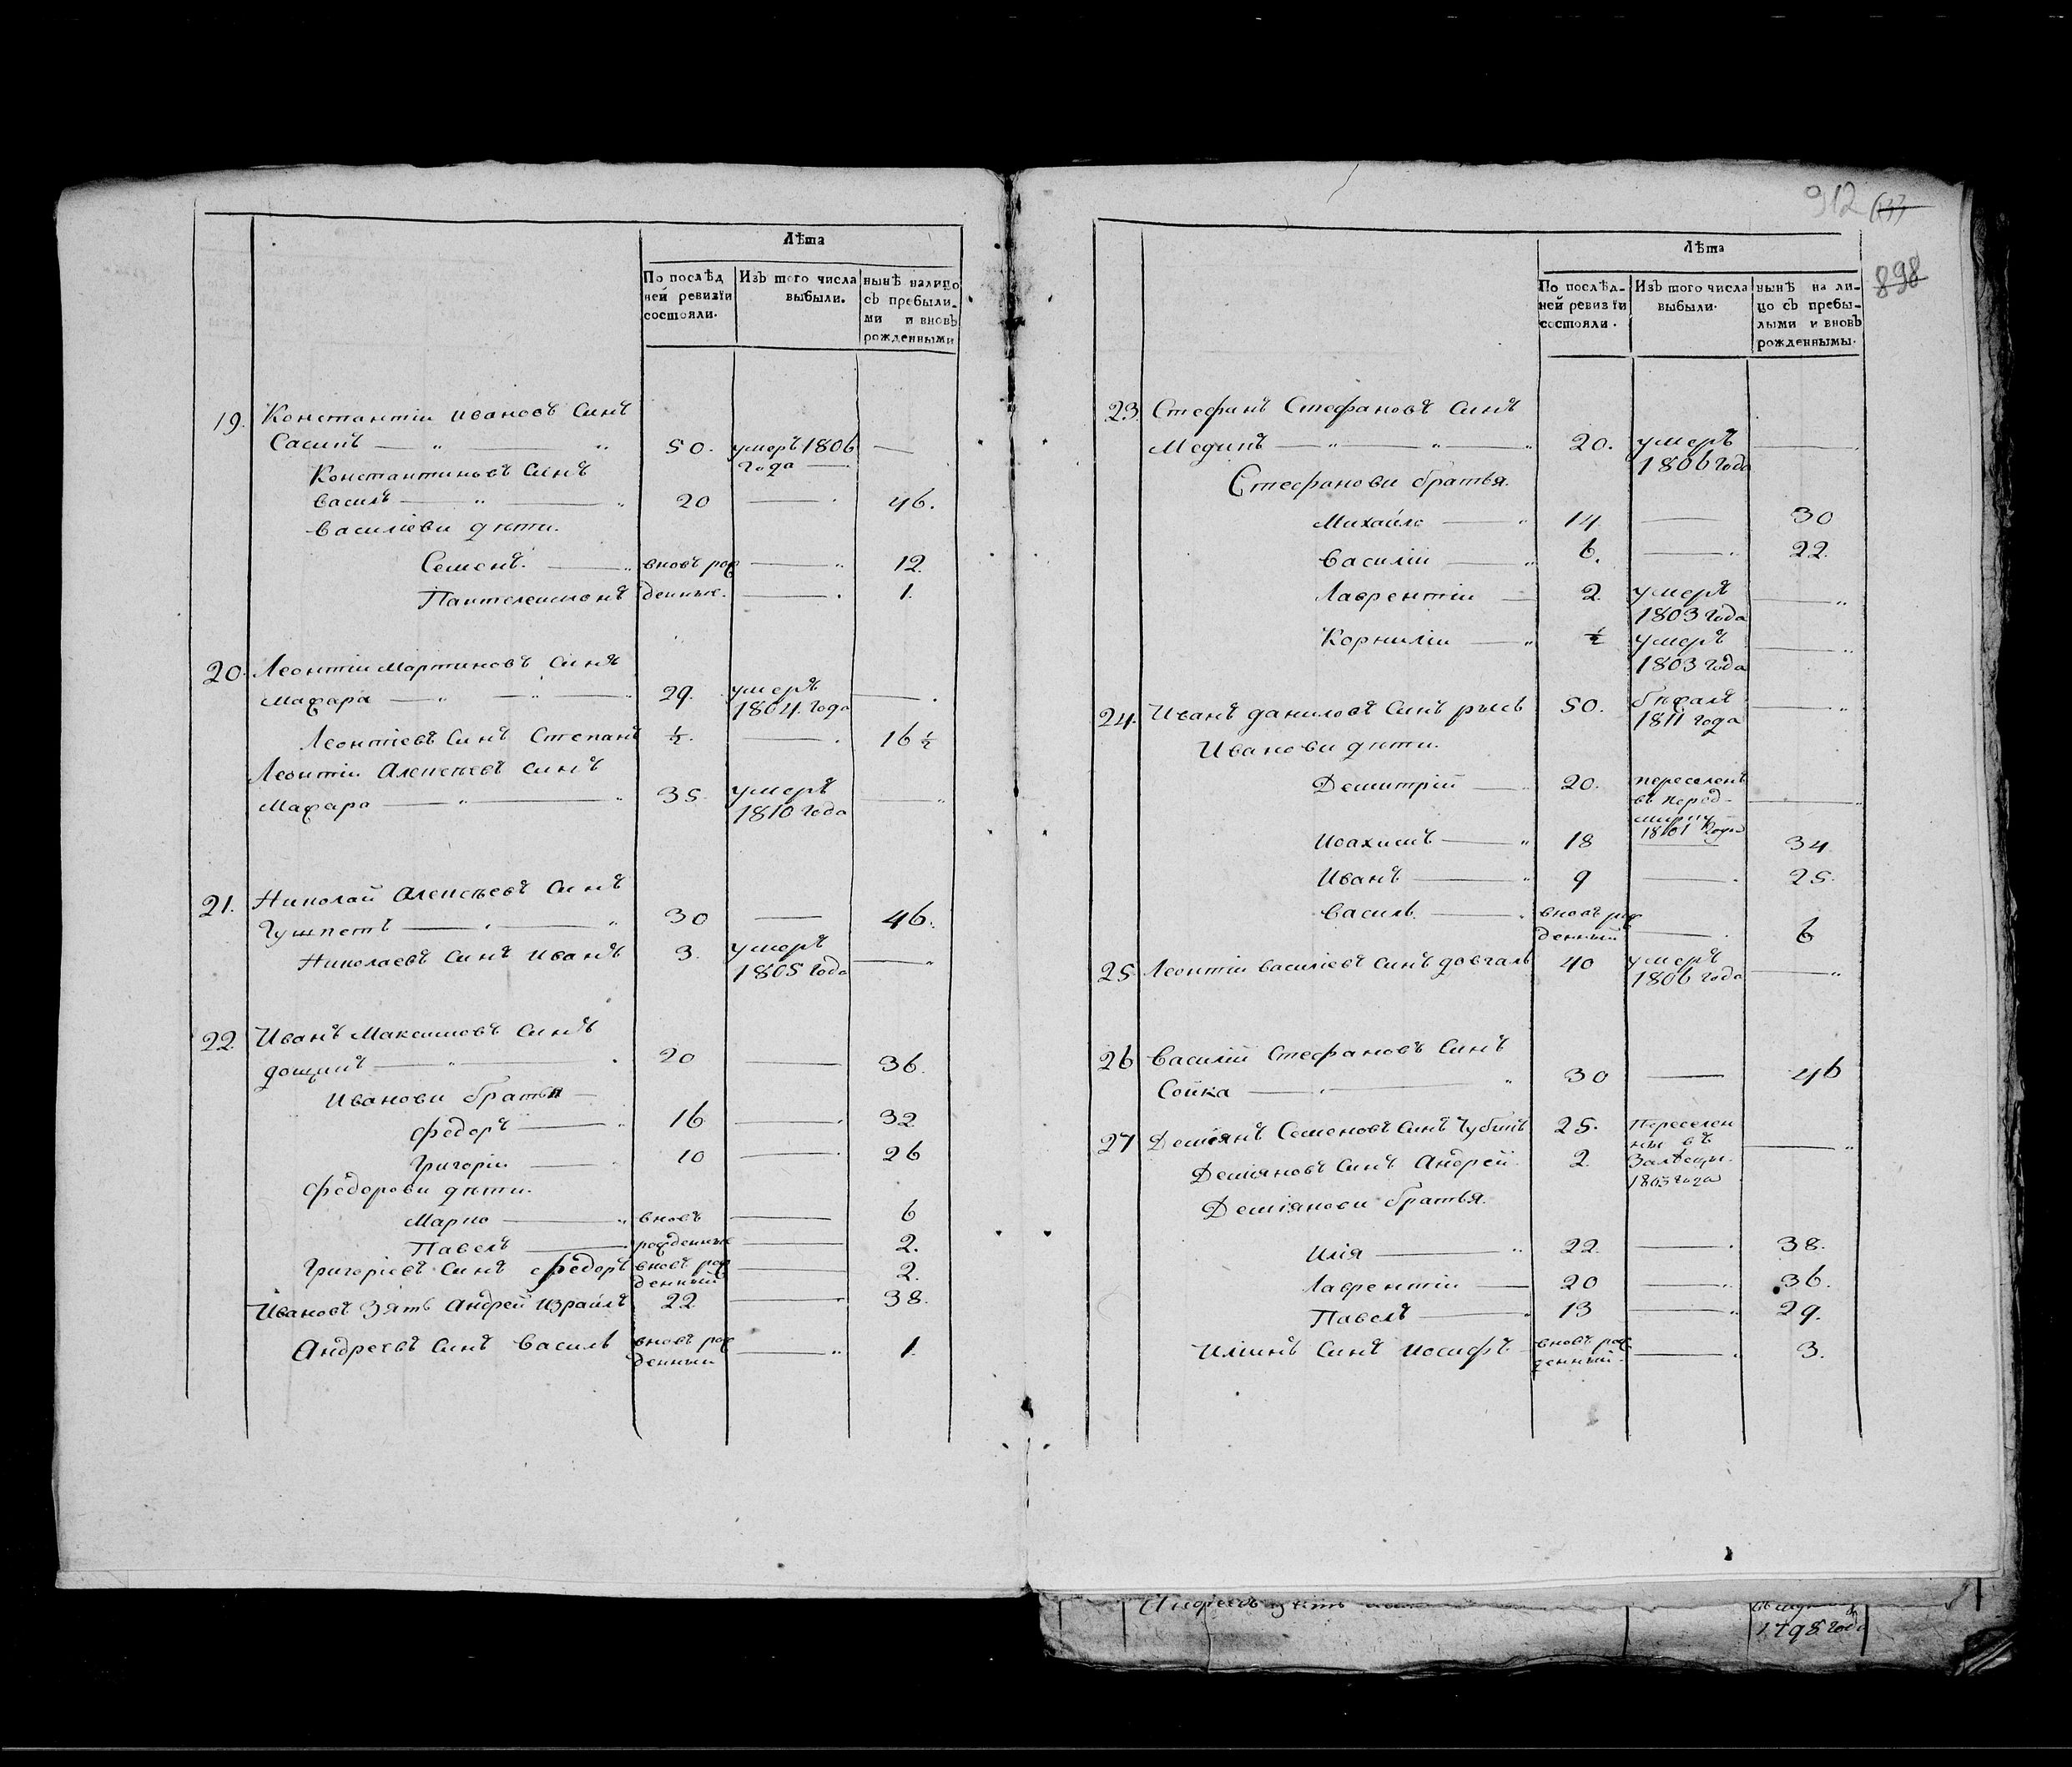 Лѣта
По послѣд
ней ревизїи
состояли.
Изъ того числа
выбыли.
нынѣ налицо
съ пребыли-
ми и вновь
рожденными
19. Константіи Ивановъ Синъ
Сасинъ — " — " 50. умеръ 1806 —
года —
Константиновъ Синъ
Василь — " — " 20 — 46.
Василіеви дѣти.
Семенъ. — " вновь рож — " 12.
Пантелеимонъ денные. — 1.
20. Леонтіи Мартиновъ Синъ
Мажара — " — " — " 29. умеръ — .
1804. Года
Леонтіевъ Синъ Степанъ ½. — . 16 ½
Леонтіи Алексѣевъ Синъ
Мажара — " — " 35. умеръ — "
1810 Года
21. Николай Алексѣевъ Синъ
— " — " 30 — 46.
Николаевъ Синъ Иванъ 3. умеръ — "
1805 Года
22. Иванъ Максимовъ Синъ
— " — 20 — 36.
Иванови братья —
Федоръ — " 16 — 32
Григоріи — 10 — 26
Федорови дѣти.
Марко — " вновь — 6
Павелъ — рожденные — 2.
Григоріевъ Синъ Федоръ вновь рож — 2.
денный
Ивановъ Зять Андрей Израилъ 22 — " 38.
Андреевъ Синъ Василь вновь рож — " 1.
денный
912 (13)
898
Лѣта
По послѣд-
ней ревизїи
состояли.
Изъ того числа
выбыли.
нынѣ на ли-
цо съ пребы-
лыми и вновь
рожденнымы.
23. Стефанъ Стефановъ Синъ
Медикъ — " — " — " 20. умеръ —
1806 года
Стефанови братья.
Михайло — " 14 — 30
Василіи — " 6. — " 22.
Лаврентіи — 2. умеръ — "
1803 года
Корниліи — " ½ умеръ — "
1803 года
24. Иванъ Даниловъ Синъ рысь 50. бѣжалъ — "
1811 года
Иванови дѣти.
Демитрій — 20. переселенъ
въ — "
1801 Года
Иоахимъ — " 18 — 34
Иванъ — " 9 — . 25.
Василь — . вновь рож
денный — . 6
25 Леонтіи Василіевъ Синъ Довгаль 40 умеръ — "
1806 года
26 Василій Стефановъ Синъ
Сойка — " — " 30 — 46
27 Деміянъ Семеновъ Синъ Чубикъ 25. Переселен
ны въ — "
Деміяновъ Синъ Андрей 2.
1803 года
Деміянови братья.
Илія — " 22. — . 38.
Лаврентіи — 20 — " 36.
Павелъ — " 13 — " 29.
Илиинъ Синъ Иосифъ вновь рож — " 3.
денный.
1798 Года